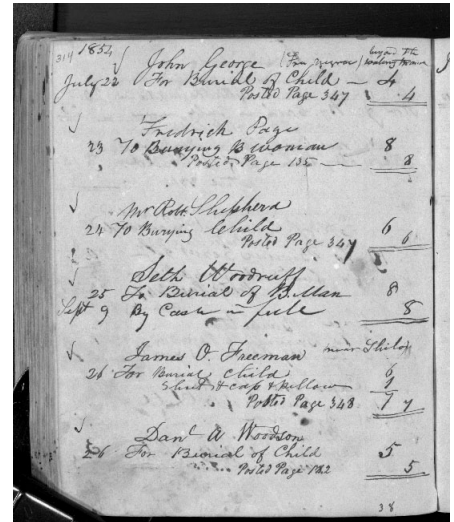 314 1854
John George (Free negroe) beyond the
July 22 For Burial of Child — 4
Posted Page 347 4
Fredrick Page
23 To Burying B woman 8
Posted Page 135 — 8
Mr Robt Shepherd
24 To Burying Child 6
Posted Page 347 6
Seth Woodruff
25 To Burial of B. Man 8
Sept 9 By Cash in full 8
James O. Freeman near Shiloh
26 For Burial Child 6
Shroud & Cap & Pillow
Posted Page 348
Danl A Woodson
26 For Burial of Child 5
Posted Page 122 5
38